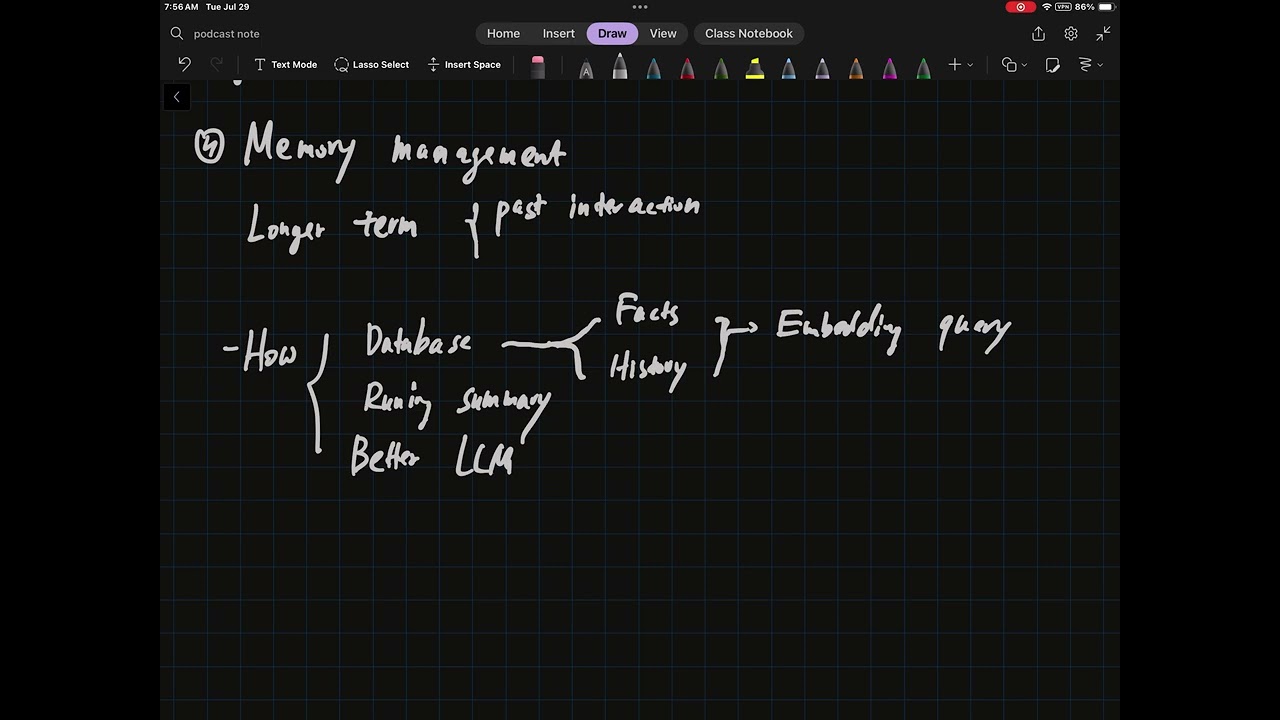 7:56 AM Tue Jul 29 86%
VPN
podcast note Home Insert Draw View Class Notebook
Text Mode Lasso Select Insert Space
④ Memory management
Longer term { past interaction
- How { Database
Facts
History
} → Embedding query
Runing summary
Better LLM